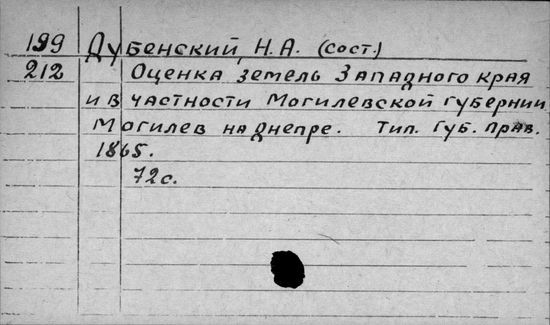 199 Дубенский, Н.А. (сост.)
212 Оценка земель Западного края
и в частности Могилевской губернии
Могилев на Днепре. Тип. Губ. Прав.
1865.
72 с.